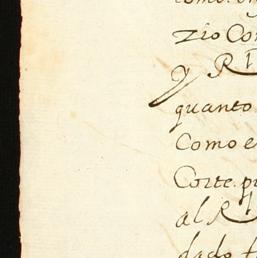 zio Con
y R
quanto
Como e
Corte. p
al R
dado f